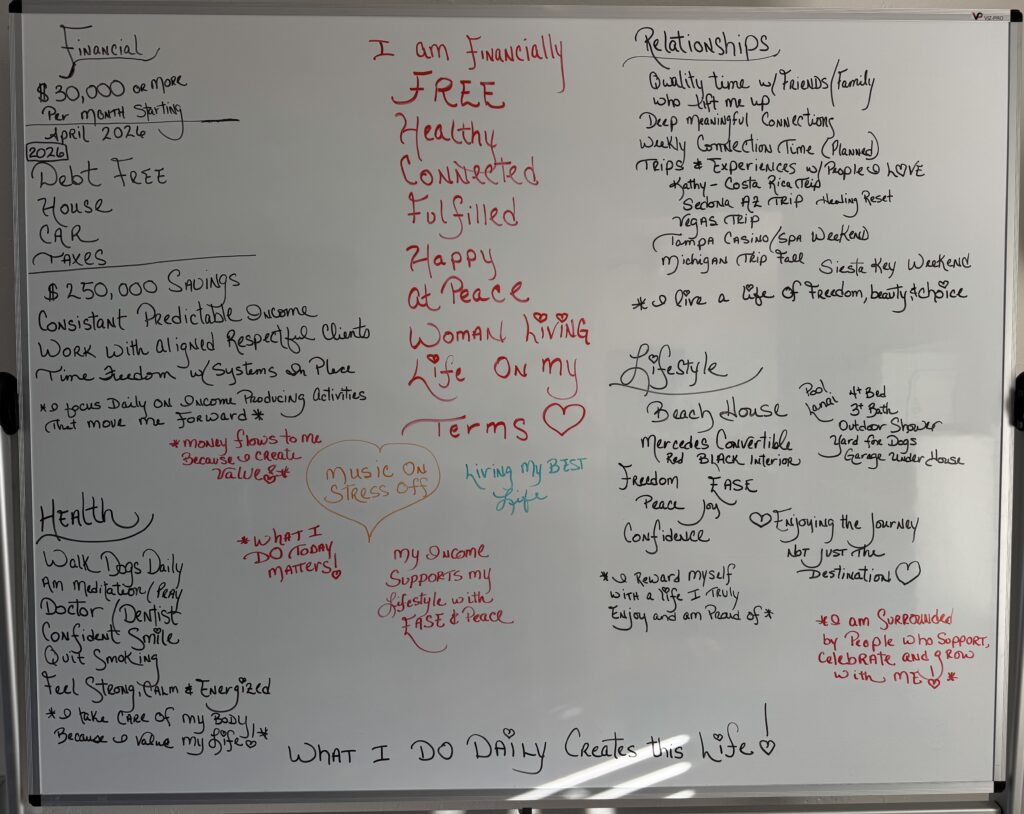 VIZ-PRO
Financial
$30,000 or more
Per Month Starting
April 2026
2026
Debt Free
House
Car
Taxes
$250,000 Savings
Consistant Predictable Income
Work with aligned Respectful Clients
Time Freedom w/ Systems In Place
*I focus Daily on Income Producing Activities
that move me Forward*
*money flows to me
Because I create
Value*
Health
Walk Dogs Daily
Am Meditation/Pray
Doctor/Dentist
Confident Smile
Quit Smoking
Feel Strong, Calm & Energized
*I take care of my Body
Because I value my Life!*
I am Financially
FREE
Healthy
Connected
Fulfilled
Happy
at Peace
Woman Living
Life On My
Terms
Music On
Stress Off
Living My BEST
Life
*What I
Do Today
Matters!
My Income
Supports my
Lifestyle with
Ease & Peace
Relationships
Quality time w/ Friends/Family
who lift me up
Deep meaningful Connections
Weekly Connection Time (Planned)
Trips & Experiences w/People I LOVE
Kathy - Costa Rica Trip
Sedona AZ Trip Healing Reset
Vegas Trip
Tampa Casino/Spa Weekend
Michigan Trip Fall
Siesta Key Weekend
*I live a life of Freedom, beauty & choice
Lifestyle
Beach House
Pool
lanai
4+ Bed
3+ Bath
Outdoor Shower
Yard for Dogs
Garage Under House
Mercedes Convertible
Red BLACK Interior
Freedom Ease
Peace Joy
Confidence
Enjoying the Journey
Not just the
Destination
*I Reward myself
with a life I Truly
Enjoy and am Proud of*
*I am Surrounded
by People who Support,
celebrate and grow
with ME!*
What I Do Daily Creates this Life!